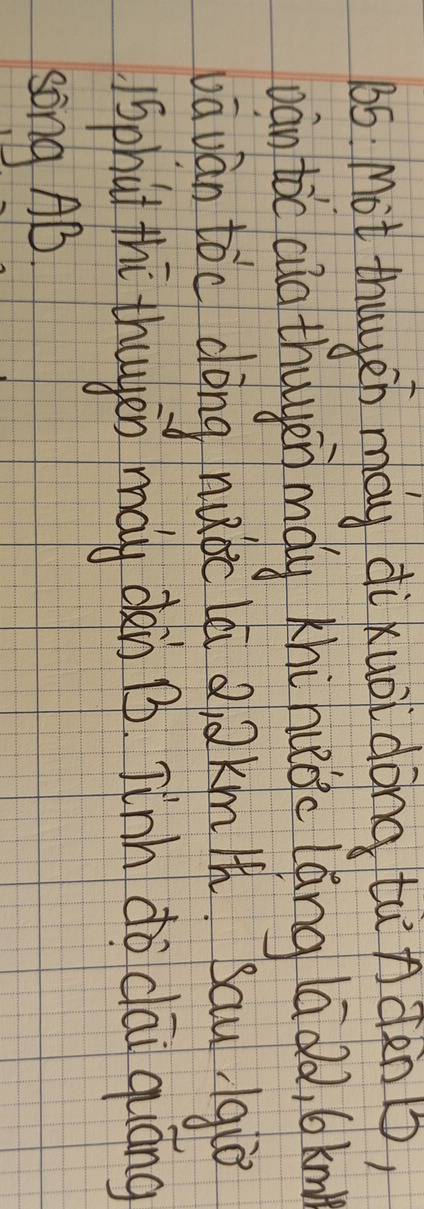 B5. Một thuyền máy đi xuôi dòng từ A đến B,
vận tốc của thuyền máy khi nước lặng là 22,6 km/h
và vận tốc dòng nước là 2,2 km/h. Sau 1 giờ
15 phút thì thuyền máy đến B. Tính độ dài quãng
sông AB.